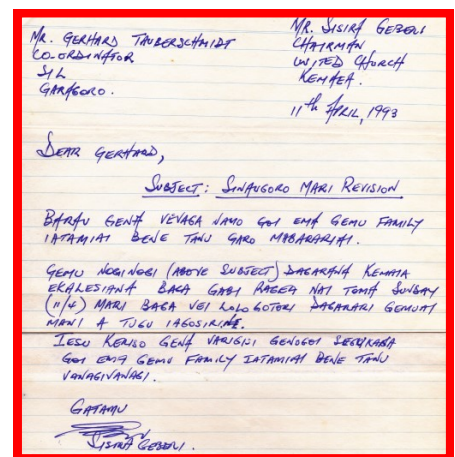 MR. SISIRA GEBOLI
MR. GERHARD TAUBERSCHMIDT
CHAIRMAN
CO-ORDINATOR
UNITED CHURCH
SIL
KEMAEA.
GARAGORO.
11th APRIL, 1993
DEAR GERHARD,
SUBJECT: SINAUGORO MARI REVISION
BARAU GENA VEVAGA NAMO GOI EMA GEMU FAMILY
IATAMIAI BENE TANU GARO MABARARIAI.
GEMU NOGINOGI (ABOVE SUBJECT) DAGARANA KEMAIA
EKALESIANA BAGA GABI RAGEA NAI TOMA SUNDAY
(11/4) MARI BAGA VEI LOLOGOTORI DAGARARI GEMUAI
MANI A TUGU IAGOSIRINE.
IESU KERISO GENA VARUGISI GENOGOI SEGUKABA
GOI EMA GEMU FAMILY IATAMIAI BENE TANU
VANAGIVANAGI.
GATAMU
SISIRA GEBOLI.